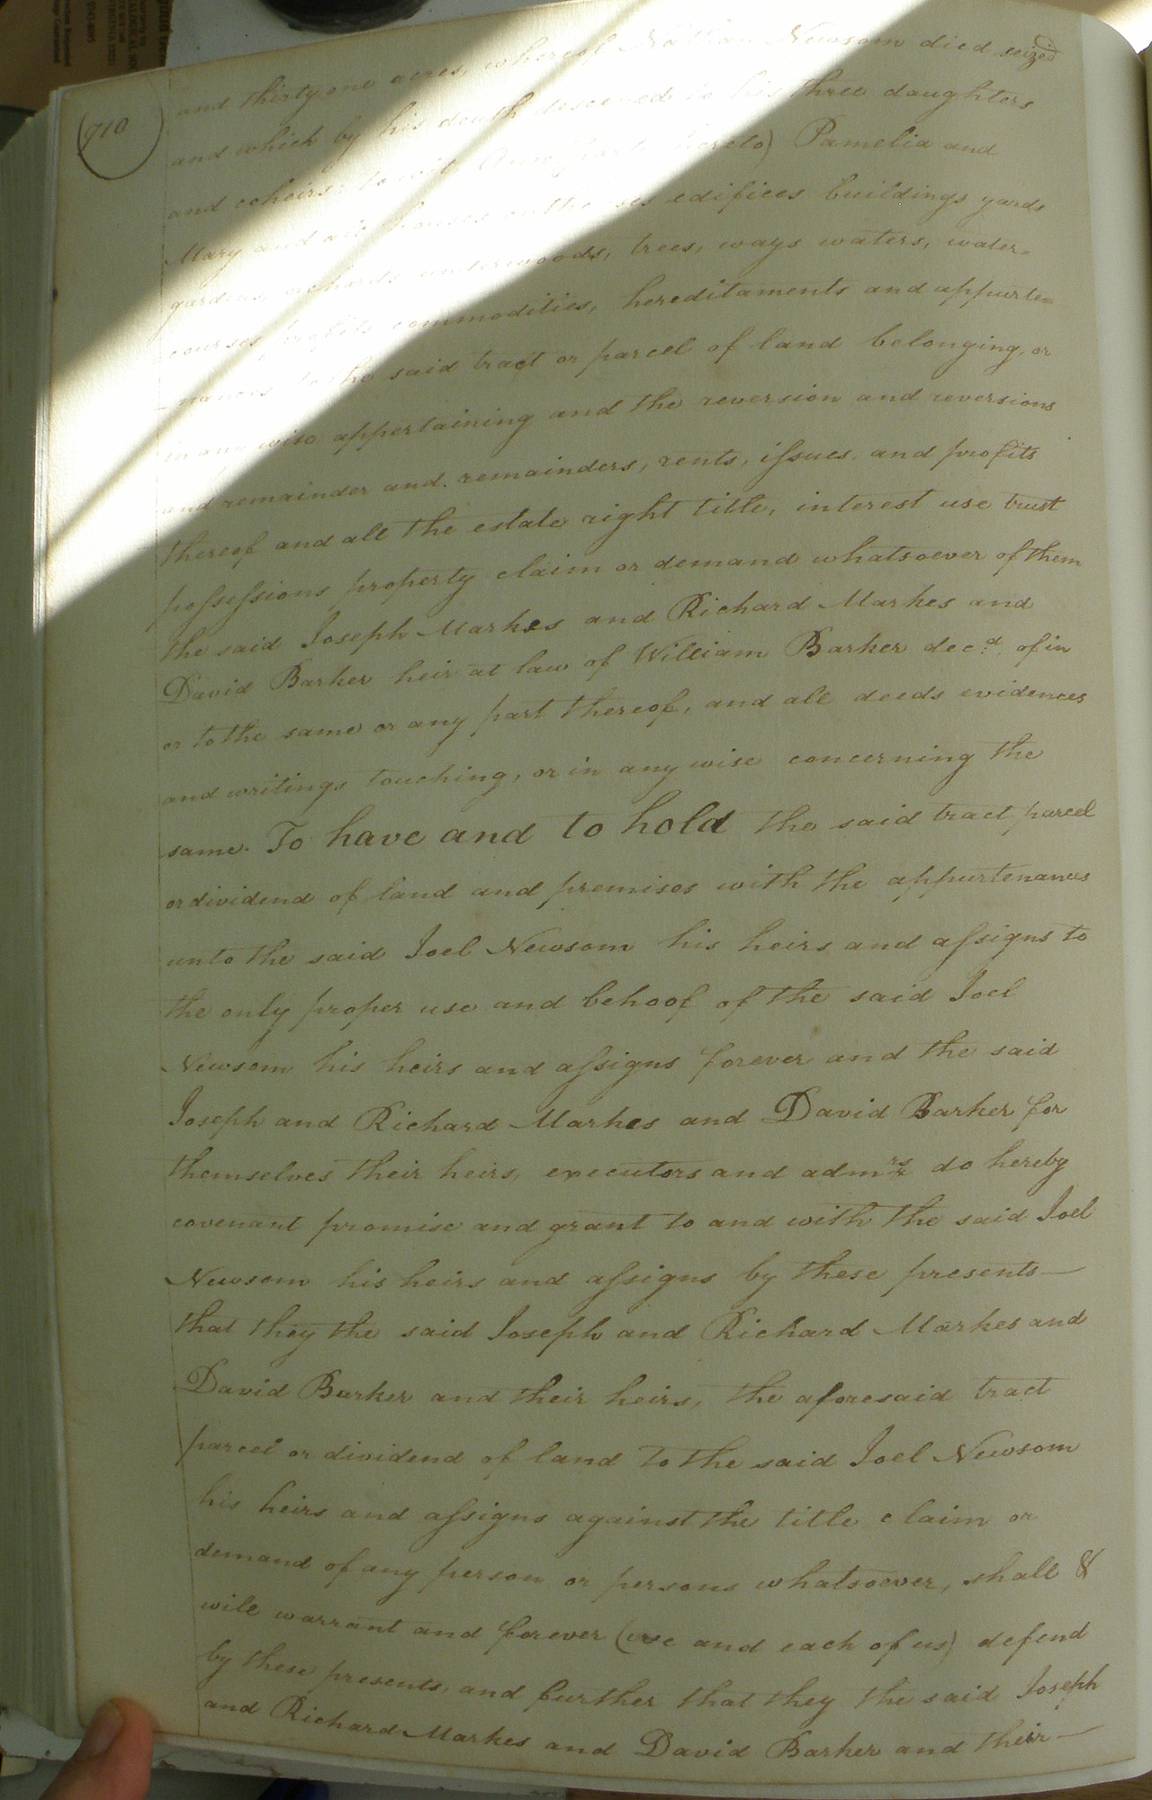 710
and thirty one acres, whereof Nathan Newsom died seized
and which by his death descended to his three daughters
and coheirs towit Pamelia and
Mary and all houses edifices buildings yards
gardens, orchards underwoods, trees, ways waters, water-
courses profits commodities, hereditaments and appurte-
nances to the said tract or parcel of land belonging, or
in any wise appertaining and the reversion and reversions
and remainder and remainders, rents, issues, and profits
thereof and all the estate right title, interest use trust
possessions property claim or demand whatsoever of them
the said Joseph Markes and Richard Markes and
David Barker heir at law of William Barker decd. of in
or to the same or any part thereof, and all deeds evidences
and writings touching, or in any wise concerning the
same. To have and to hold the said tract parcel
or dividend of land and premises with the appurtenances
unto the said Joel Newsom his heirs and assigns to
the only proper use and behoof of the said Joel
Newsom his heirs and assigns forever and the said
Joseph and Richard Markes and David Barker for
themselves their heirs, executors and admrs do hereby
covenant promise and grant to and with the said Joel
Newsom his heirs and assigns by these presents—
that they the said Joseph and Richard Markes and
David Barker and their heirs, the aforesaid tract
parcel or dividend of land to the said Joel Newsom
his heirs and assigns against the title claim or
demand of any person or persons whatsoever, shall &
will warrant and forever (we and each of us) defend
by these presents, and further that they the said Joseph
and Richard Markes and David Barker and their—